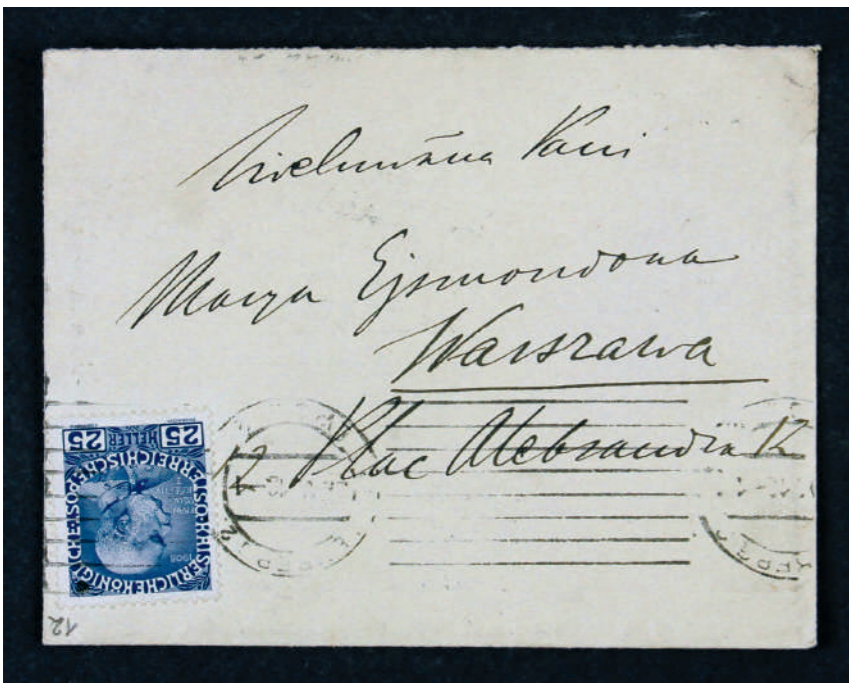 Wielmożna Pani
Marya Ejsmondowa
Warszawa
12 Plac Aleksandra 12
25 HELLER 25
KAISERLICHE KÖNIGLICHE ÖSTERREICHISCHE POST
1908
12